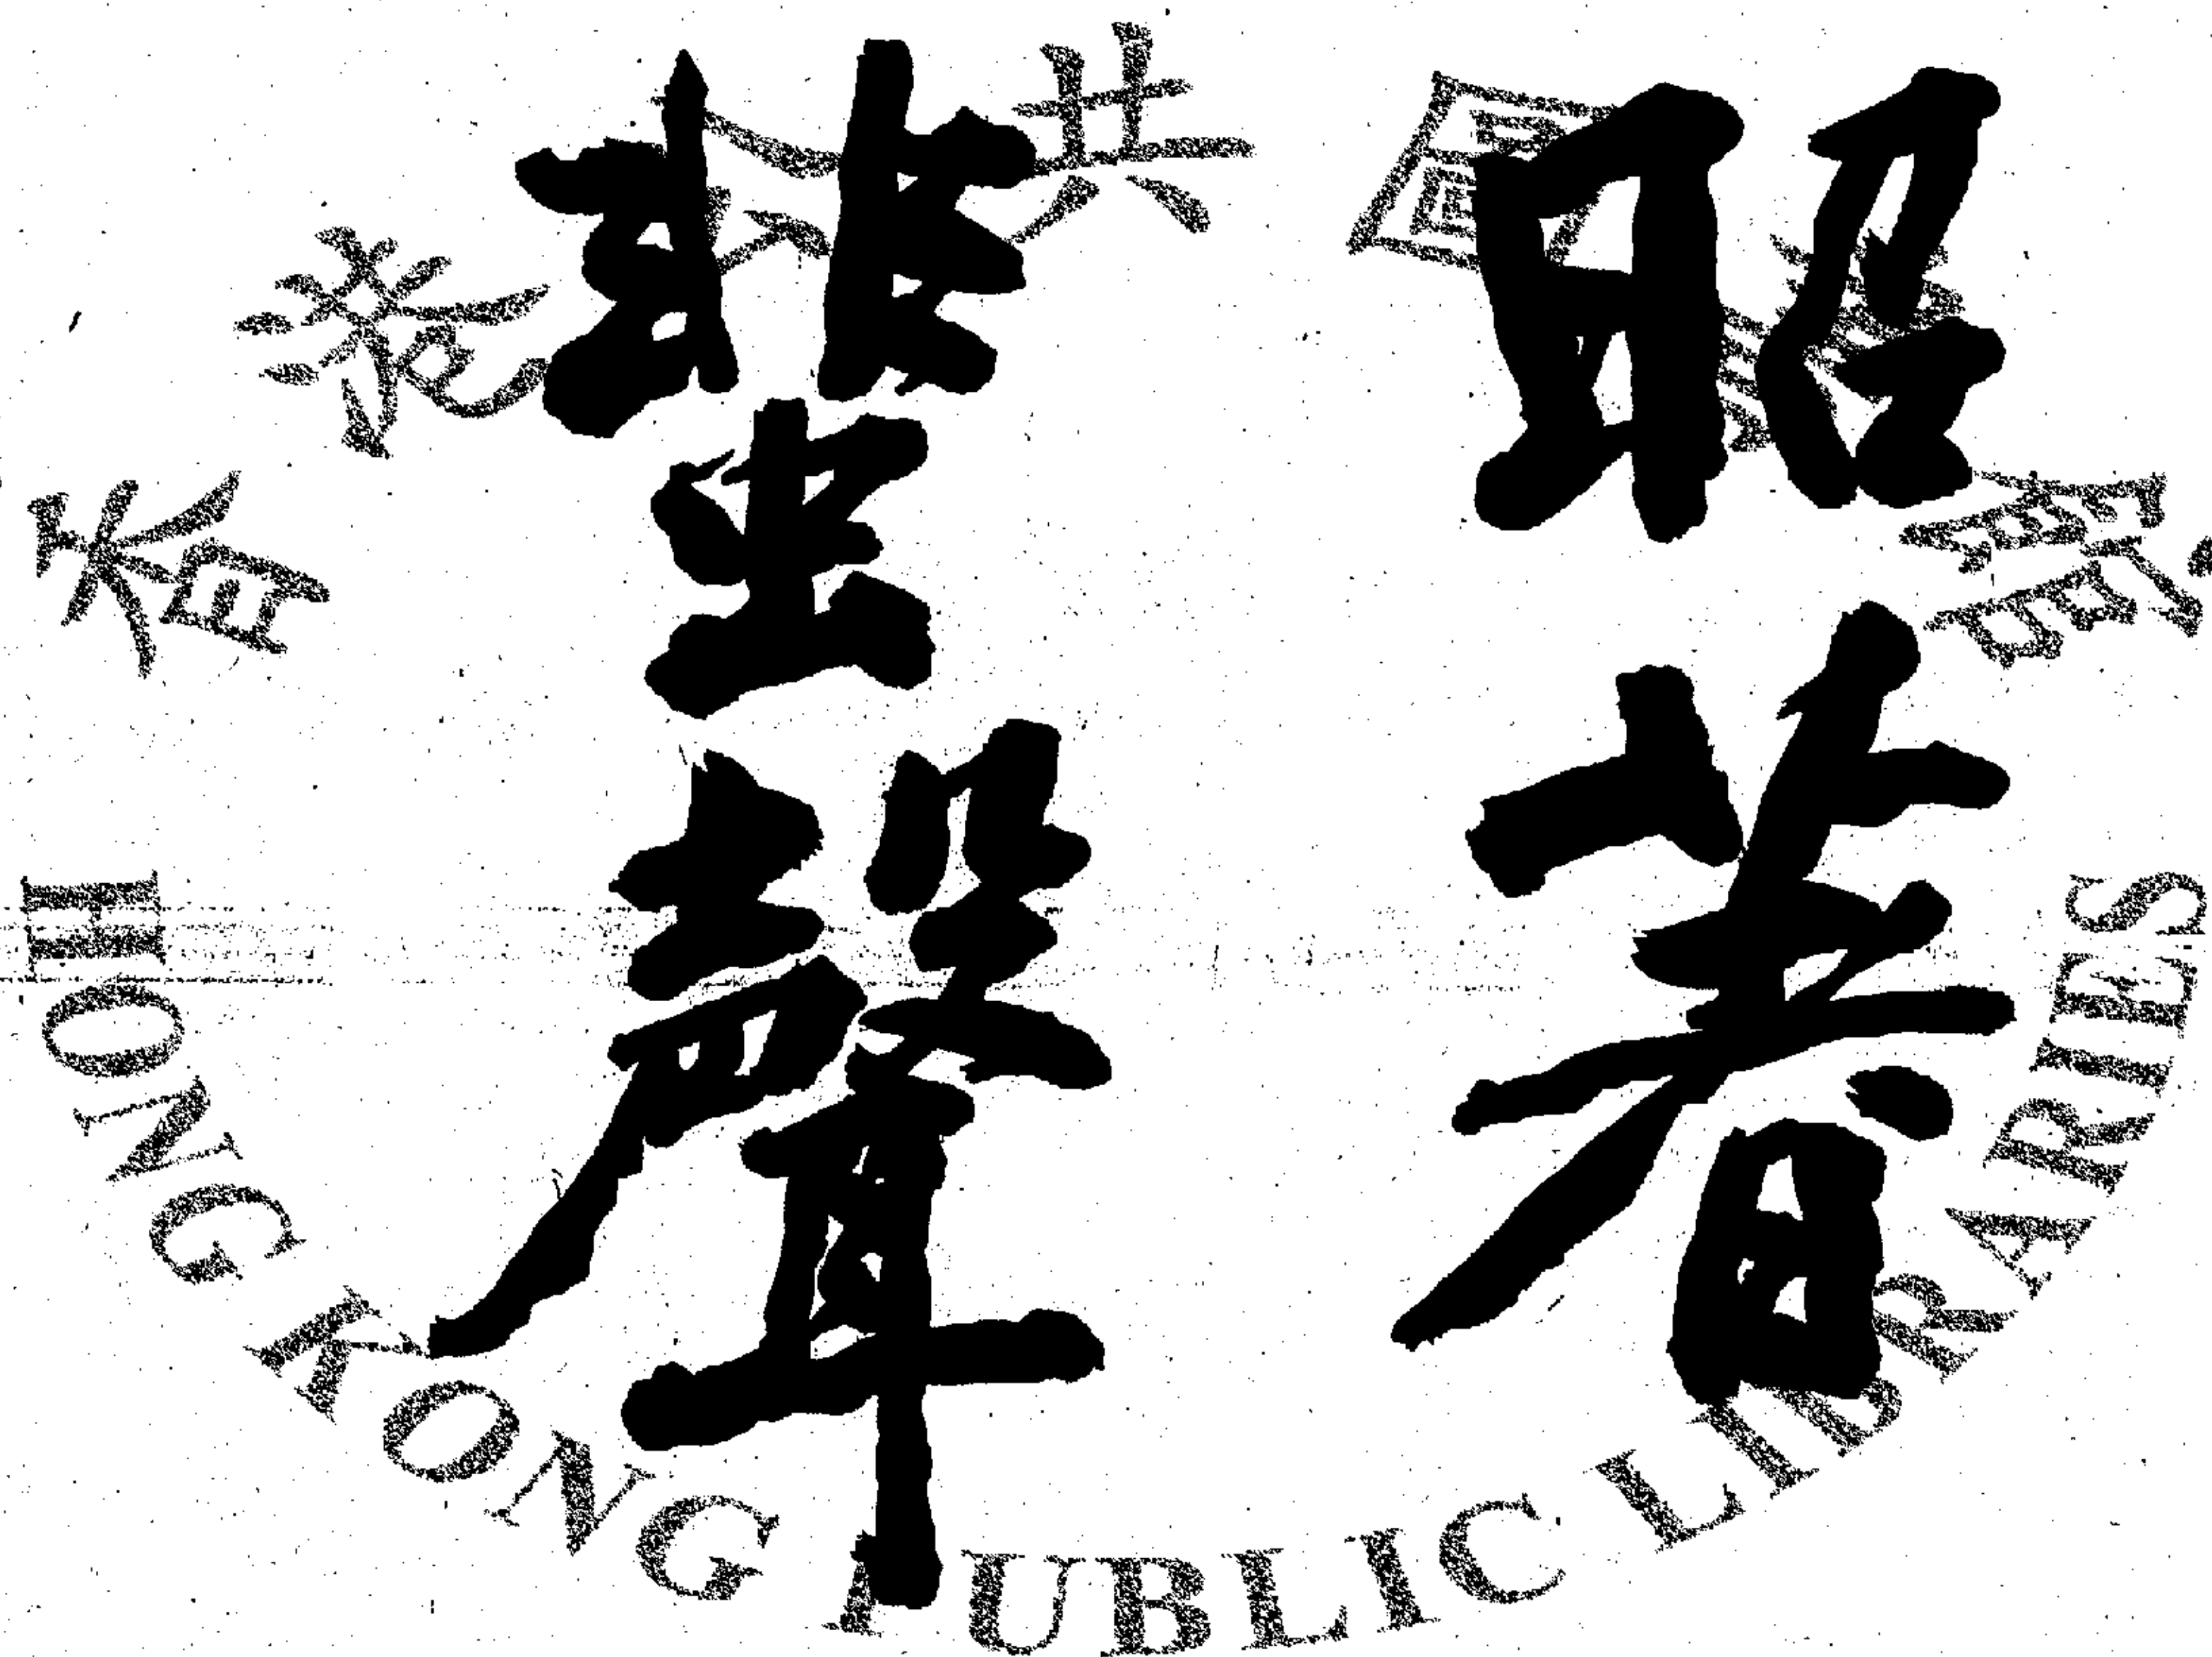 昭著
蜚聲
香港公共圖書館
HONG KONG PUBLIC LIBRARIES